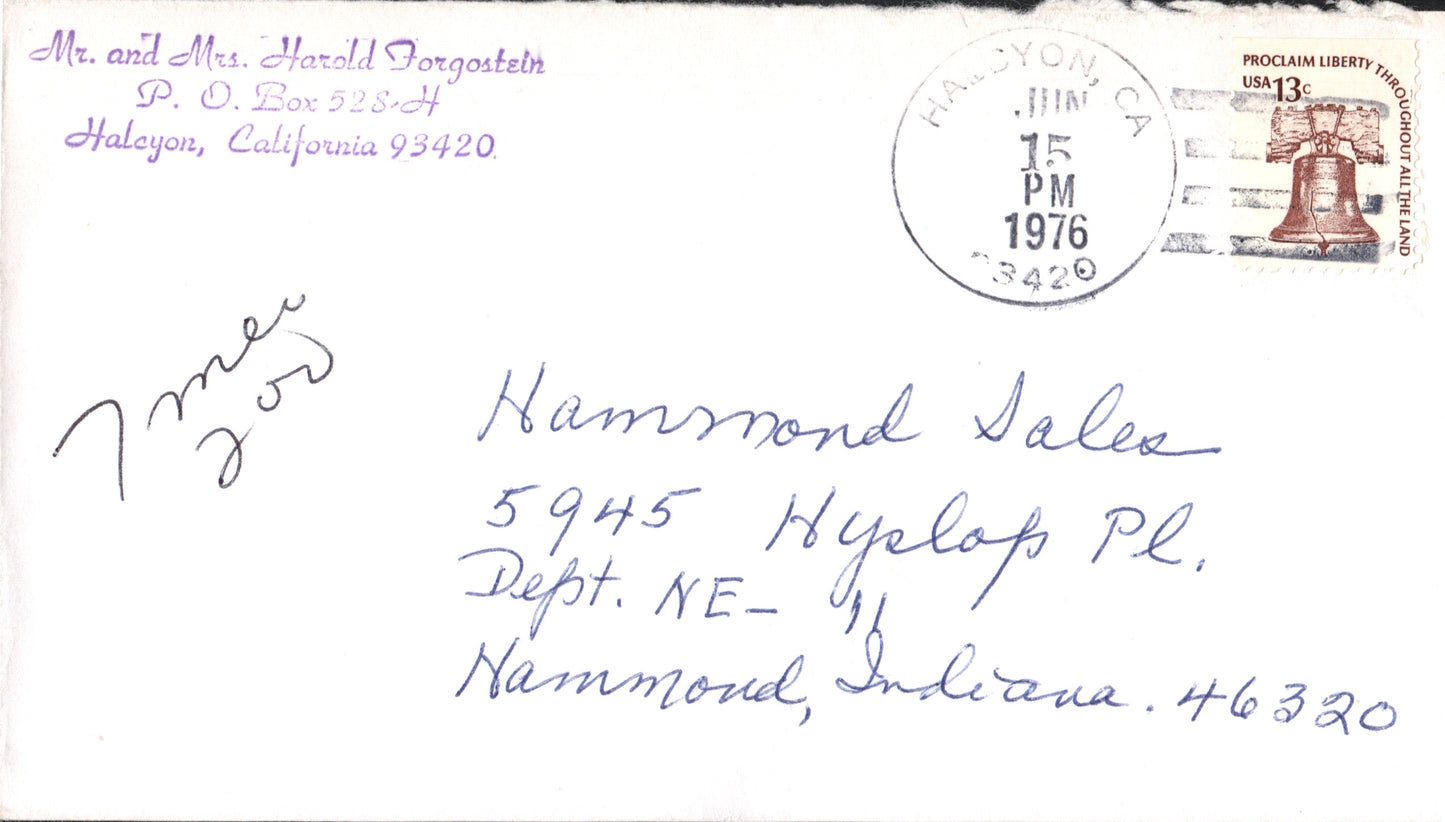 Mr. and Mrs. Harold Forgostein
P. O. Box 528-H
Halcyon, California 93420
HALCYON, CA
JUN
15
PM
1976
93420
PROCLAIM LIBERTY THROUGHOUT ALL THE LAND
USA 13c
Hammond Sales
5945 Hyslop Pl.
Dept. NE- 11
Hammond, Indiana. 46320